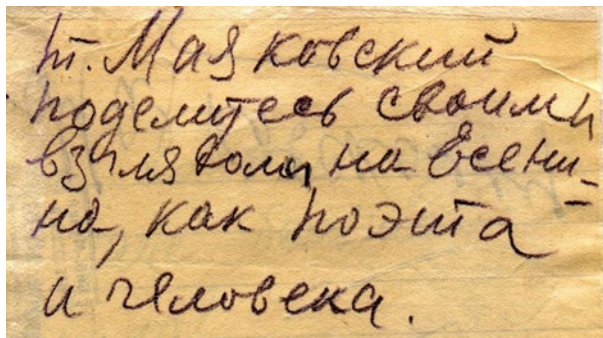 т. Маяковский
поделитесь своими
взглядами на Есени-
на, как поэта
и человека.